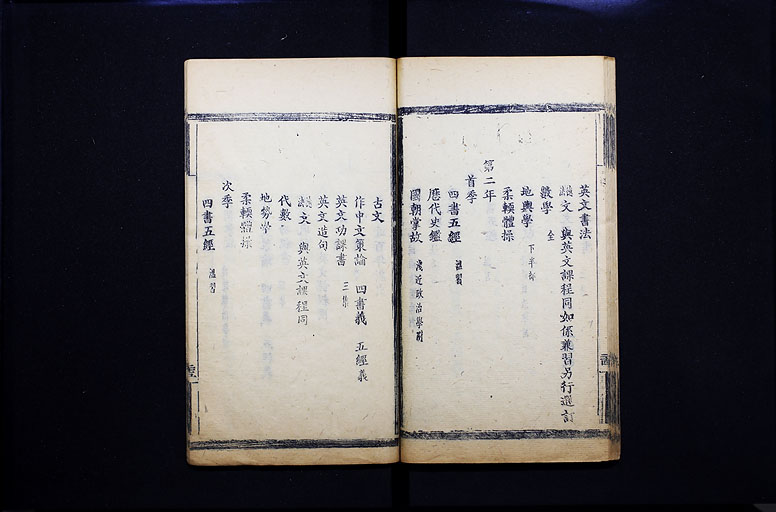 英文書法
法文 與英文課程同如係兼習另行選訂
數學 全
地輿學 下半部
柔輭體操
第二年
首季
四書五經 溫習
歷代史鑑
國朝掌故 或近政治學刻
古文
作中文策論 四書義 五經義
英文功課書 三集
英文造句
文 與英文課程同
代數
地勢學
柔輭體操
次季
四書五經 溫習